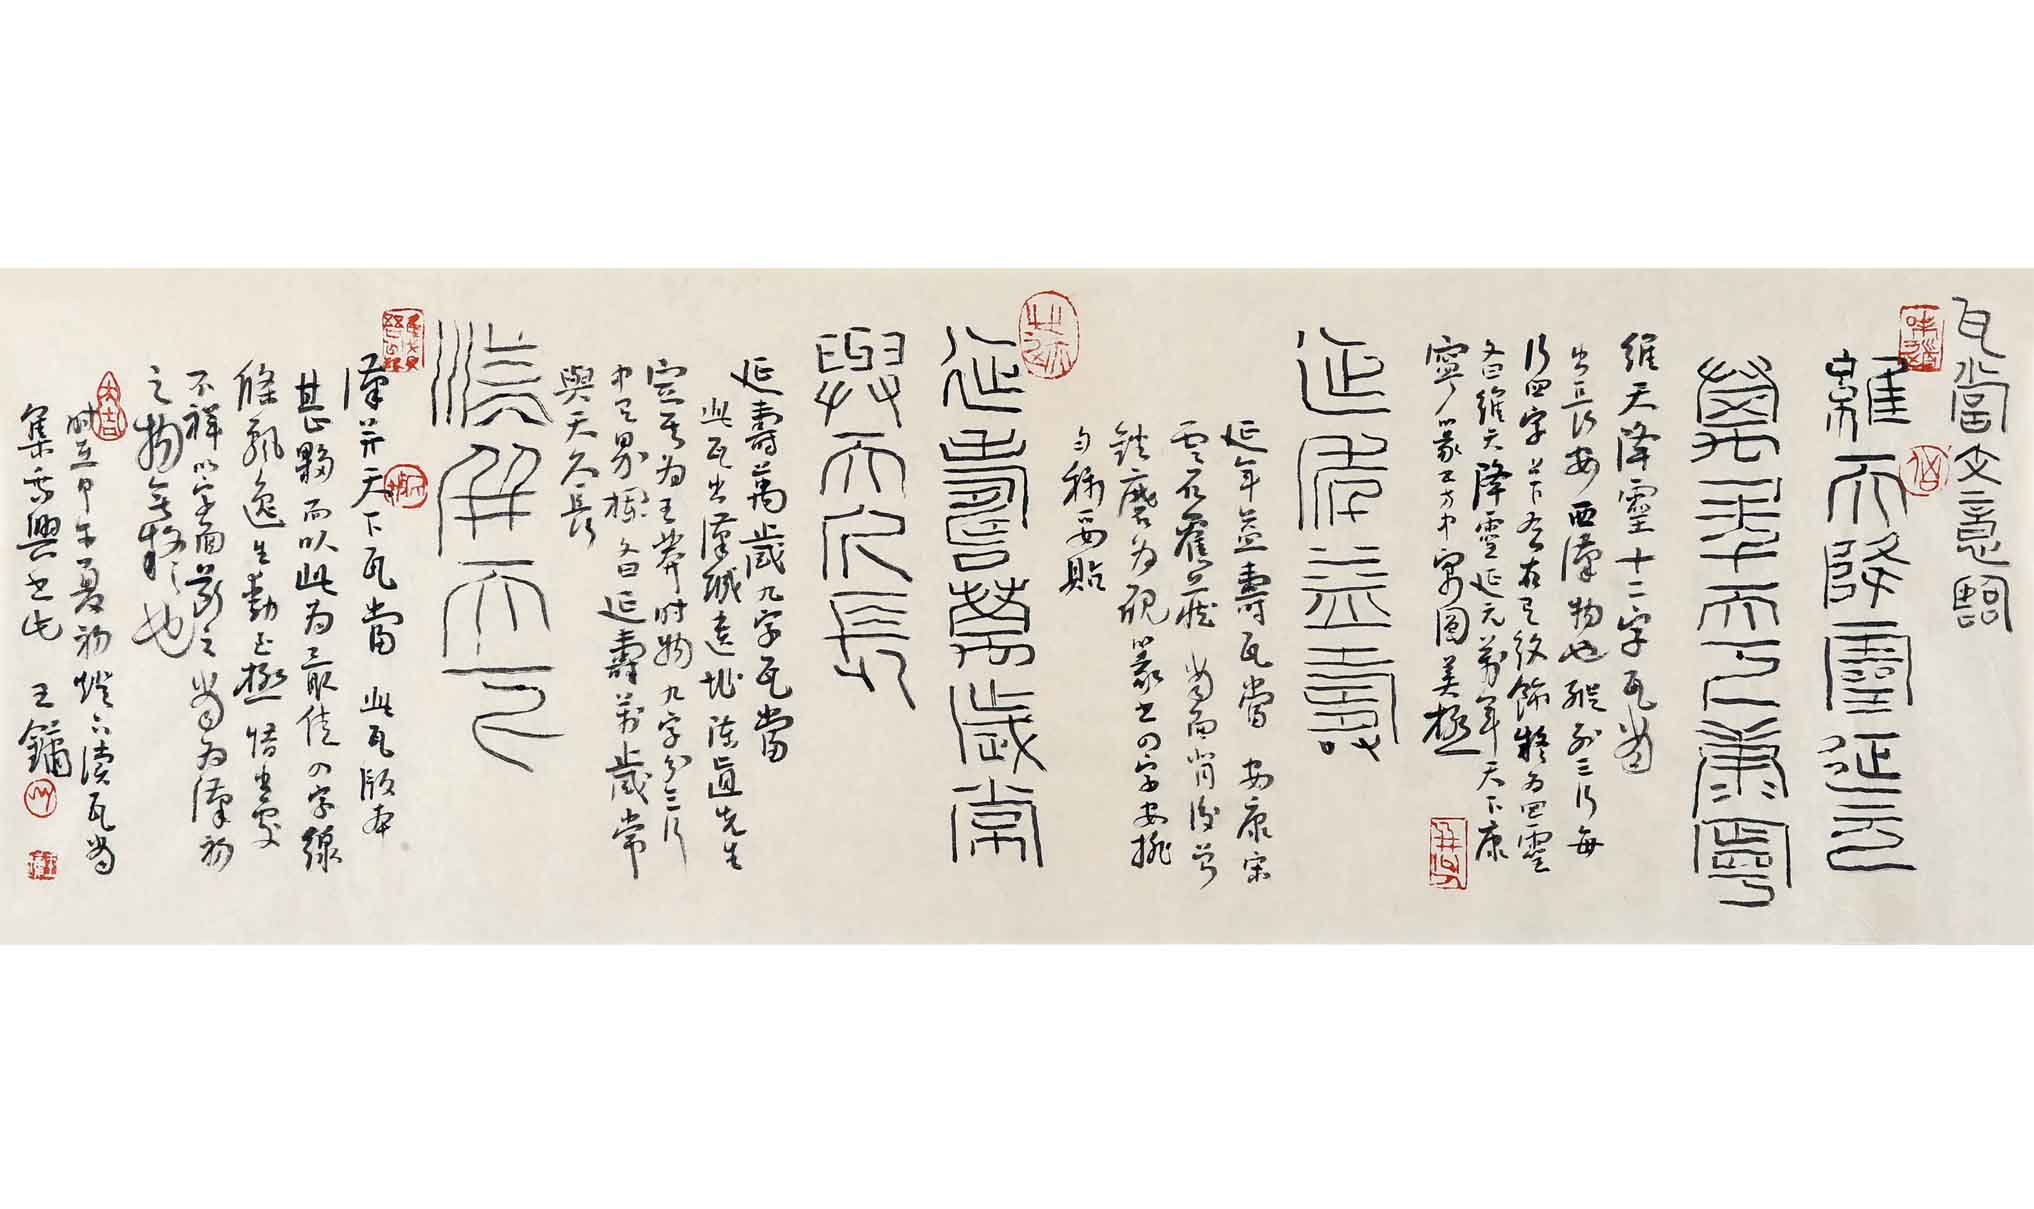 瓦當文意臨
維天降靈延元
萬年天下康寧
維天降靈十二字瓦當
出長安西漢物也縱列三行每
行四字其下左右有紋飾擬為四靈
文曰維天降靈延元萬年天下康
寧篆工方中寓圓美極
延年益壽
延年益壽瓦當
為硯篆書四字安排
勻稱妥貼
延壽萬歲常
與天久長
延壽萬歲九字瓦當
此瓦出漢城遺址陳直先生
定其為王莽時物九字分三行
中有界格文曰延壽萬歲常
與天久長
漢并天下
漢并天下瓦當 此瓦版本
甚夥而以此為最佳四字線
條飄逸生動之極惜出處
不祥以字面義之當為漢初
之物無疑也
時在甲午夏初燈下讀瓦當
集乘興書此 王鏞